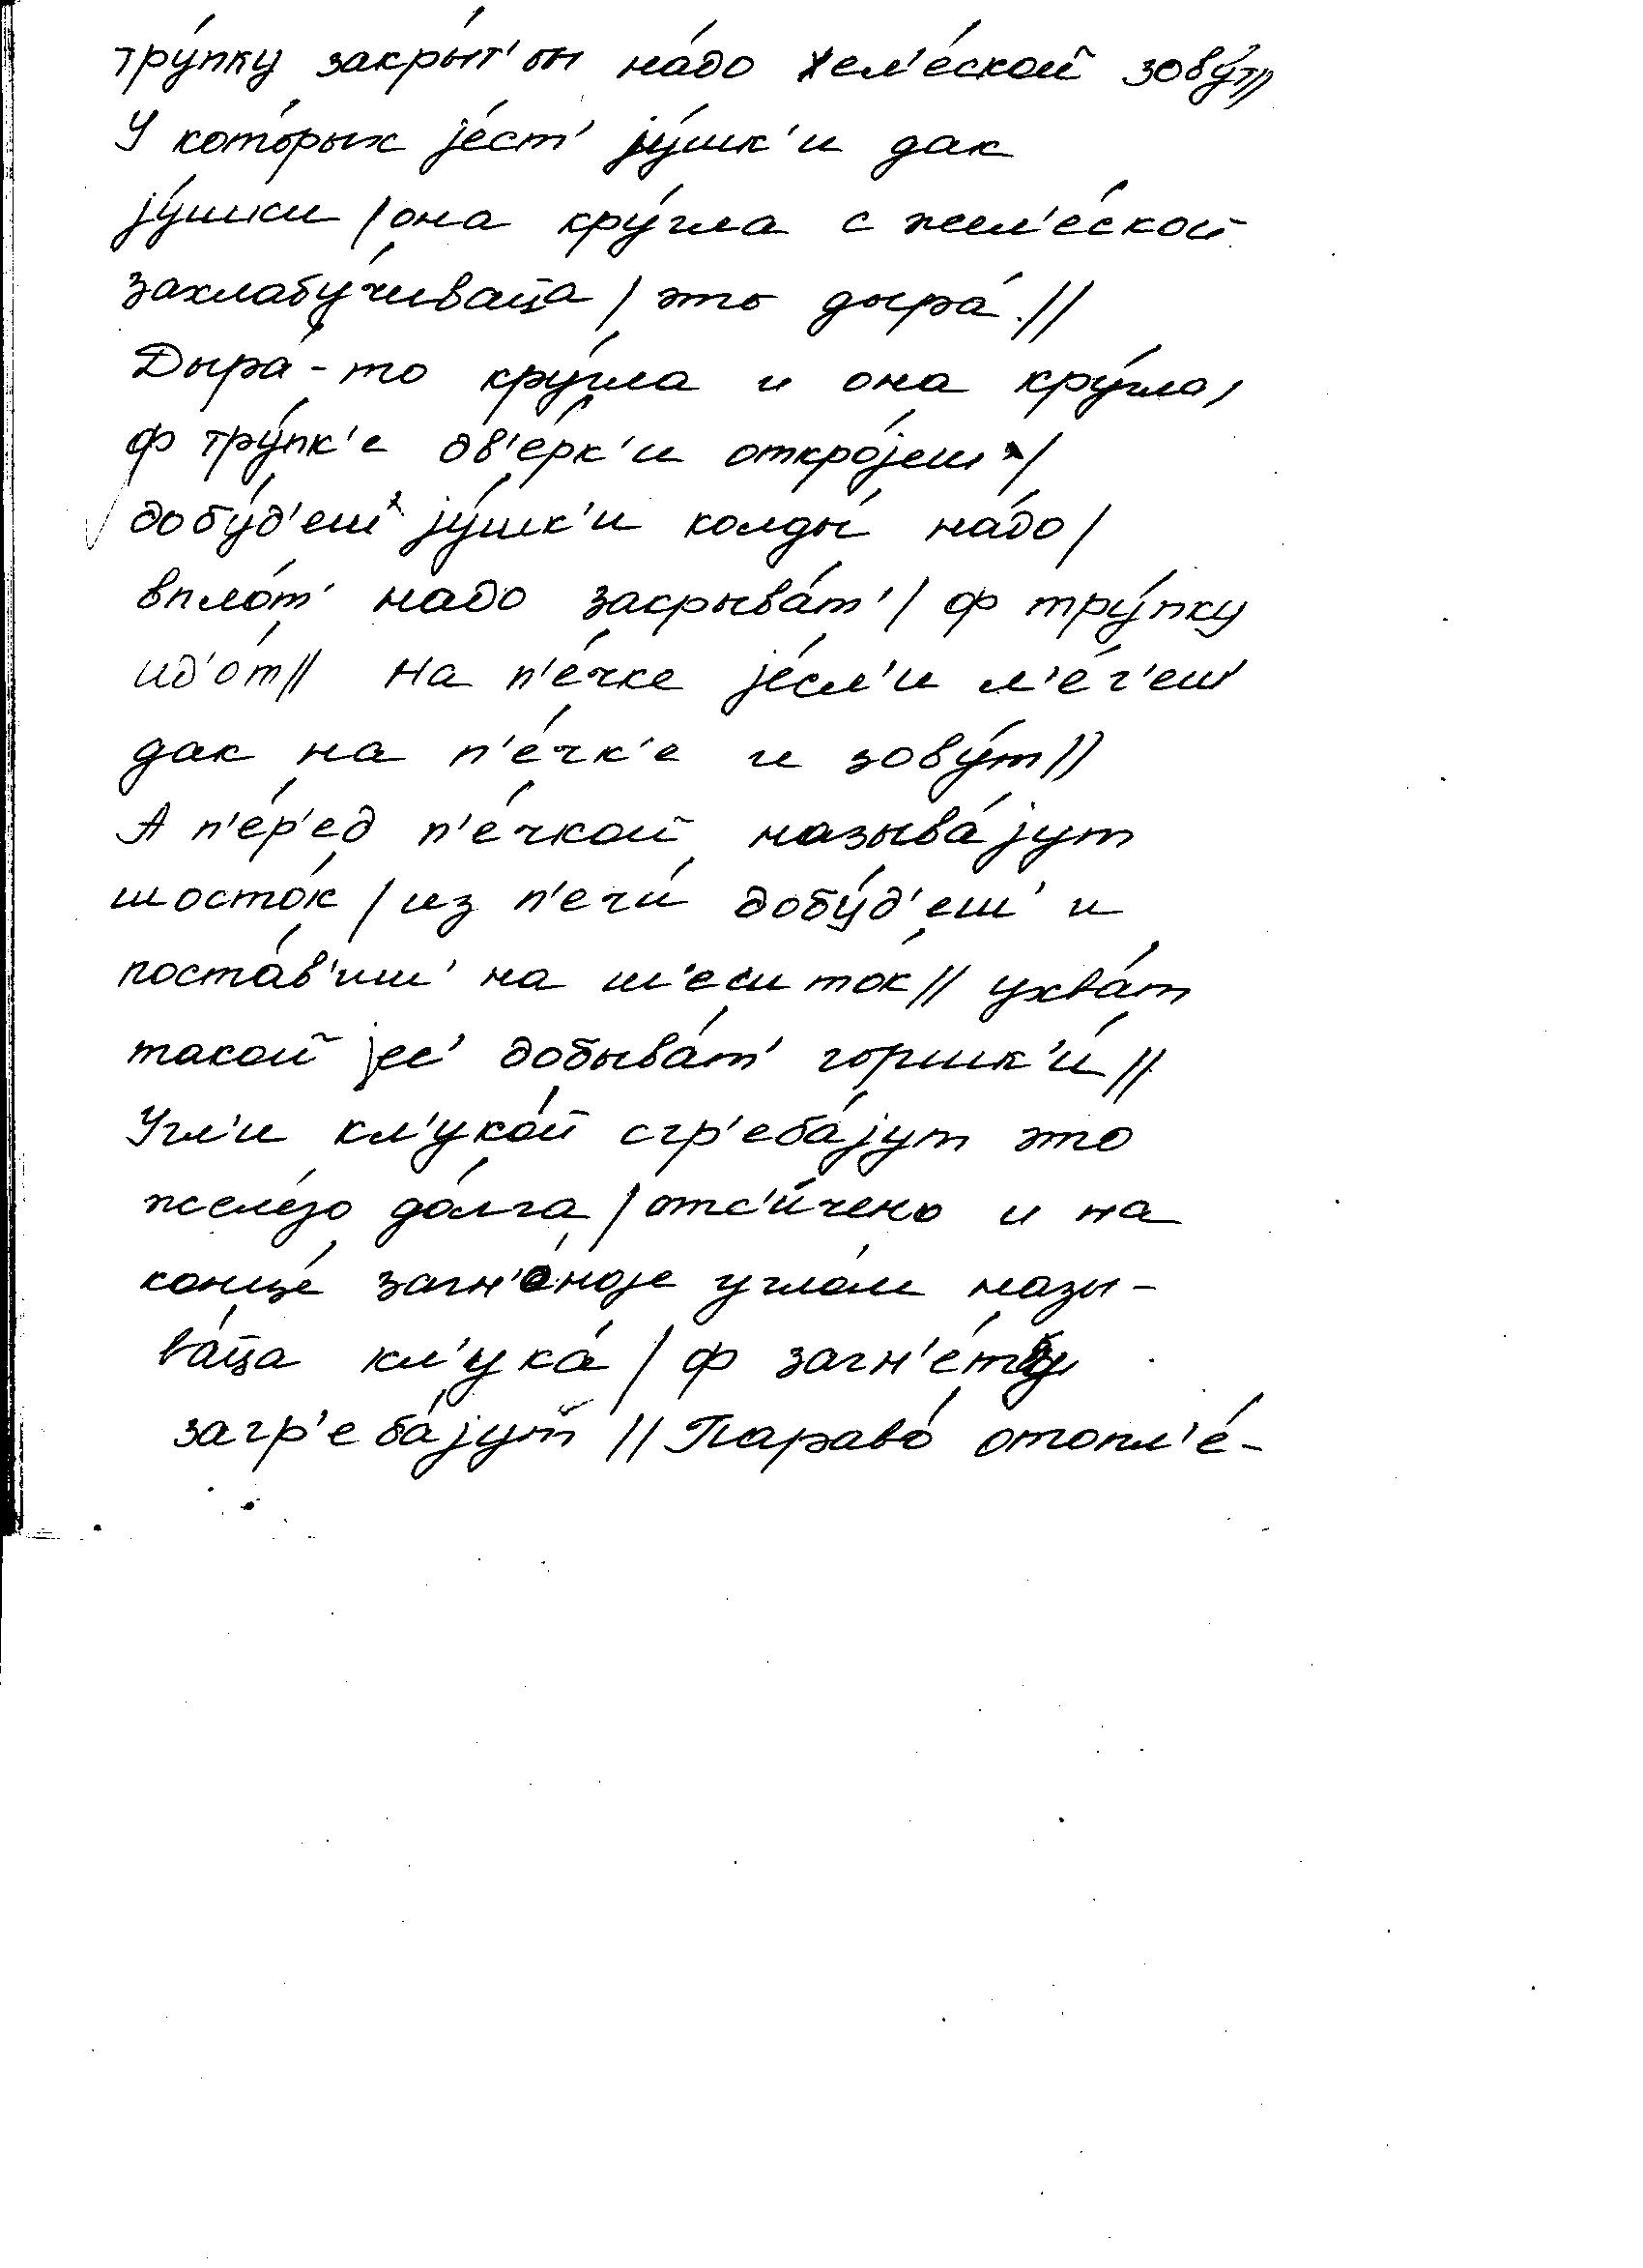 тру́пку закры́т' он на́до жел'е́ской зову́т//
У кото́рых jе́ст' jу́шк'и дак
jу́шки / она кру́гла с жел'е́ской
захлабу́чиваца / это дыра́ //
Дыра́-то кру́гла и она кру́гла,
ф тру́пк'е дв'е́рк'и откро́jеш' /
добу́д'еш' jу́шк'и колды́ на́до /
впло́т' надо закрыва́т' / ф тру́пку
ид'о́т// На п'е́чке jе́сл'и л'е́г'еш'
дак на п'е́чк'е и зову́т//
А п'е́р'ед п'е́чкой называ́jут
шосто́к / из п'ечи́ добу́д'еш' и
поста́в'иш' на ш'есток// ухва́т
такой jес' добыва́т' горшк'и́ //
Угл'и кл'уко́й сгр'еба́jут это
желе́зо до́лга / отс'и́чено и на
конце́ загн'о́ноjе угло́м назы-
ва́ца кл'ука́ / ф загн'е́ту
загр'еба́jут // Параво́ отопл'е́-